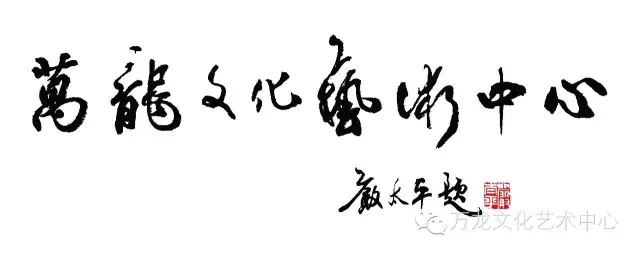 萬龍文化藝術中心
嚴太平題
万龙文化艺术中心